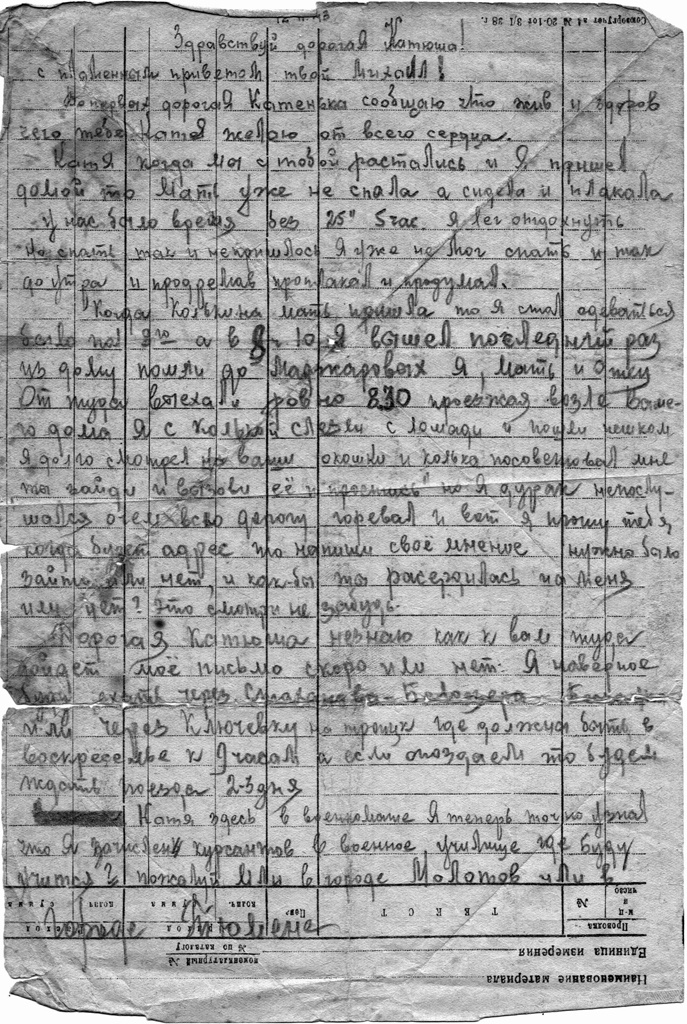 Союзоргучет з1 № 20-10т 3/I 38 г.
Здравствуй дорогая Катюша!
с пламенным приветом твой Михаил!
Во первых дорогая Катенька сообщаю что жив и здоров
чего тебе Катя желаю от всего сердца.
Катя когда мы с тобой растались и я пришел
домой то Мать уже не спала а сидела и плакала
у нас было время без 25" 5 час. я лег отдохнуть
но спать так и не пришлось я уже не мог спать и так
до утра и продремав проплакал и продумал.
Когда Колькина мать пришла то я стал одеваться
было а в 8 ч 10 я вышел последний раз
из дому пошли до Маджаровых я, мать и отец
От туда выехали ровно 830 проезжая возле Ваше-
го дома я с Колькой слезли с лошади и пошли пешком
я долго смотрел на ваши окошки и колька посоветовал мне
"ты зайди и вызови её и простись" но я дурак непослу-
шался о чем всю дорогу горевал и вот я прошу тебя
когда будет адрес то напиши своё мнение нужно было
зайти или нет, и как-бы ты расердилась на меня
или нет? это смотри не забудь.
Дорогая Катюша незнаю как к вам туда
дойдет моё письмо скоро или нет. Я наверное
буду ехать через Стаханово
или через Ключевку на где должны быть в
воскресенье к 9 часам а если опоздаем то будем
ждать поезда 2-3 дня
Катя здесь в военкомате я теперь точно узнал
что я зачислен курсантов в военное училище где буду
учится? пожалуй или в городе Молотов или в
городе
Проводка
м-ц и число
№
ТЕКСТ
Пов.
колич.
сумма
колич.
сумма
номенклатурный №
№ по каталогу
Единица измерения
Наименование материала